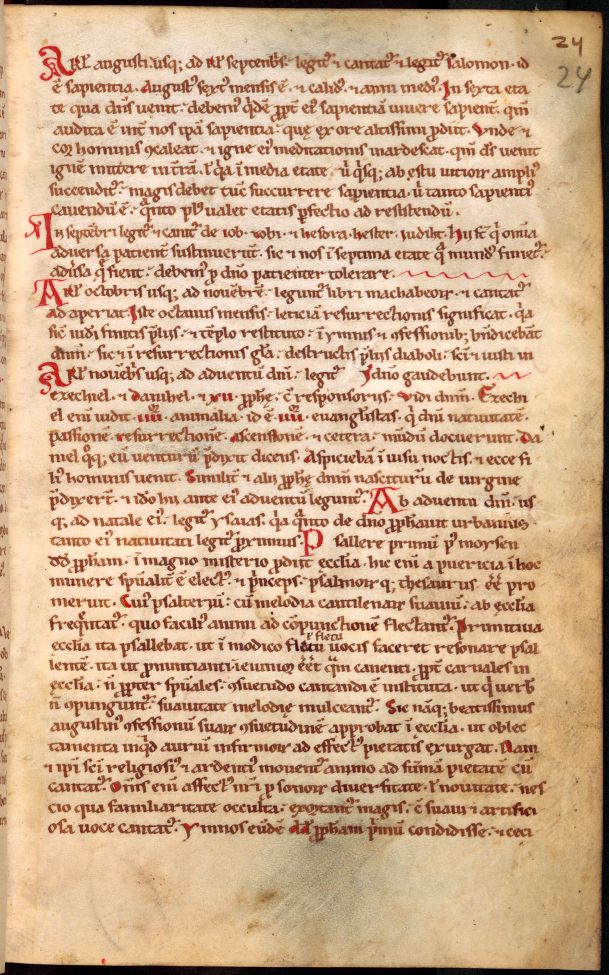 24
24
A kl' augusti usq; ad kl' septembs. legit' & cantat' & legit' salomon. id
ē sapientia. Augusť sext' mensis ē. & calid'. & anni medi'. In sexta eta
te qua dn̄s venit. debem' q̄dē ꝓpt' ei' sapientiā vivere sapient'. qm̄
audita ē unt' nos ipā sapientia. quę ex ore altissimi ꝓdiit. Unde &
cor hominis ꝯcaleat. & igne ei' meditationis inardescat. qm̄ dn̄s venit
ignē mittere in t'rā. l' q̄a ī media etate. ū q̄sq; ab estu vitioꝝ ampli'
succendit'. magis debet tūc succurrere sapientia. ū tanto sapienti'
cavendū ē. q̄nto pl' valet etatis ꝑfectio ad resistendū.
In septēbri legit' & cant' de iob. tobi. & hesdra. hester. iudiht. Hi sť q̄ omīa
adversa patient' sustinuerūt. sic & nos ī septima etate q̄ mund' finiet'.
adūsa q̄ fient. debem' ꝑ dn̄o patienter tolerare.
A kl' octobris usq; ad novēbrē. legunt' libri machabeoꝝ. & cantat'
ad aperiat. Iste octauus mensis. leticiā resurrectionis significat. q̄a
sic iudi finitis p̄liis. & tēplo restituto. ī ymnis & ꝯfessionib; bn̄dicebāt
dn̄m. sic & ī resurrectionis gl̄a. destructis p̄liis diaboli. sc̄i & iusti in
A kl' novēbs usq; ad adventū dn̄i. legit' dn̄o gaudebunt.
ezechiel. & danihel. & xii. ꝓphę. c̄ responsoriis. Vidi dn̄m. Ezechi
el eni vidit. iiii. animalia. id ē. iiii. evangl'istas. q̄ dn̄i nativitatē.
passionē. resurrectionē. ascensionē. & cetera. mūdū docuerunt. Da
niel q̄q; eū venturū p̄dixit dicens. Aspiciebā ī visu noctis. & ecce fi
li' hominis venit. Similit' & alii ꝓphę dn̄m nasciturū de virgine
p̄dixerť. & ido hii ante ei' adventū legunt'. Ab adventu dn̄i. us
q; ad natale ei'. legit' ysaias. q̄a q̄nto de dn̄o ꝓphavit urbanius.
tanto ei' nativitati legit' ꝓximus. Psallere primū p' moysen
dd ꝓpham. ī magno misterio ꝓdiit ecclia. hic eni a puericia ī hoc
munere sp̄ualit' ē elect'. & p̄nceps. psalmoꝝ q; thesaurus. ēē pro
meruit. Cui' psalteriū. cū melodia cantilenaꝝ suaviū. ab ecclia
freq̄ntat'. quo facili' animi ad cōpunctionē flectant'. Primitiva
l' flectu
ecclia ita psallebat. ut ī modico fletu vocis faceret resonare psal
lentē. ita ut ꝓnuntianti ieiunioꝝ ēēt q̄m canenti. ꝓpt' carnales in
ecclia. n̄ ꝓpter sp̄uales. ꝯsuetudo cantandi ē instituta. ut q̄ verb'
n̄ ꝯpungunt'. suavitate melodię mulceant'. Sic nāq; beatissimus
augustin' ꝯfessionū suaꝝ ꝯsuetudinē approbat ī ecclia. ut oblec
tamenta inq̄d auriū infirmoꝝ ad effect' pietatis exurgat. Nam
& ipi sc̄i religiosi' & ardenti' movent' animo ad flāmā pietatē cū
cantat'. Om̄s eni affect' nr̄i ꝑ sonoꝝ diversitate. l' novitate. nes
cio qua familiaritate occulta. excitant' magis. c̄ suavi & artifici
osa voce cantat'. Ymnos eūdē dd ꝓpham p̄mū condidisse. & ceci